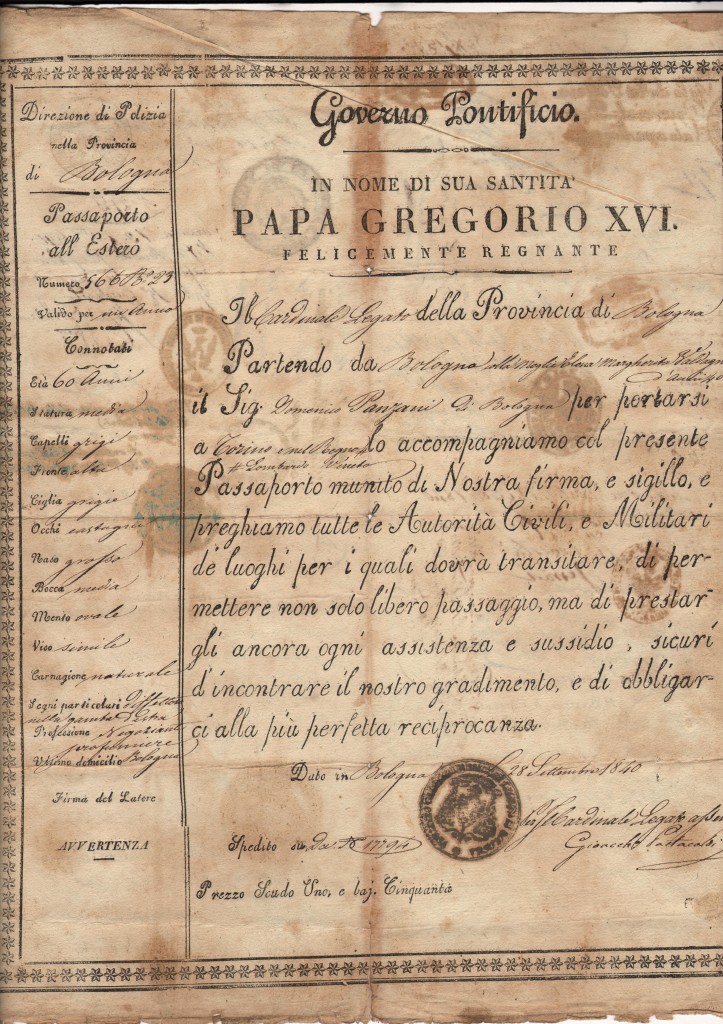 Direzione di Polizia
nella Provincia
di Bologna
Passaporto
all' Estero
Numero 566
Valido per un Anno
Connotati
Età 60 Anni
Statura media
Capelli grigi
Fronte alta
Ciglia grigie
Occhi castagni
Naso grosso
Bocca media
Mento ovale
Viso simile
Carnagione naturale
Segni particolari difettoso
nella gamba destra
Professione Negoziante
Ultimo domicilio Bologna
Firma del Latore
AVVERTENZA
Governo Pontificio.
IN NOME DI SUA SANTITA'
PAPA GREGORIO XVI.
FELICEMENTE REGNANTE
Il Cardinale Legato della Provincia di Bologna
Partendo da Bologna colla Moglie Margherita
il Sig. Domenico Panzani Di Bologna per portarsi
a Torino e nel Regno lo accompagniamo col presente
# Lombardo Veneto
Passaporto munito di Nostra firma, e sigillo, e
preghiamo tutte le Autorità Civili, e Militari
de luoghi per i quali dovrà transitare, di per-
mettere non solo libero passaggio, ma di prestar-
gli ancora ogni assistenza e sussidio, sicuri
d'incontrare il nostro gradimento, e di obbligar-
ci alla più perfetta reciprocanza.
Dato in Bologna 28 Settembre 1840
Cardinale Legato
Spedito su
Prezzo Scudo Uno, e baj. Cinquanta